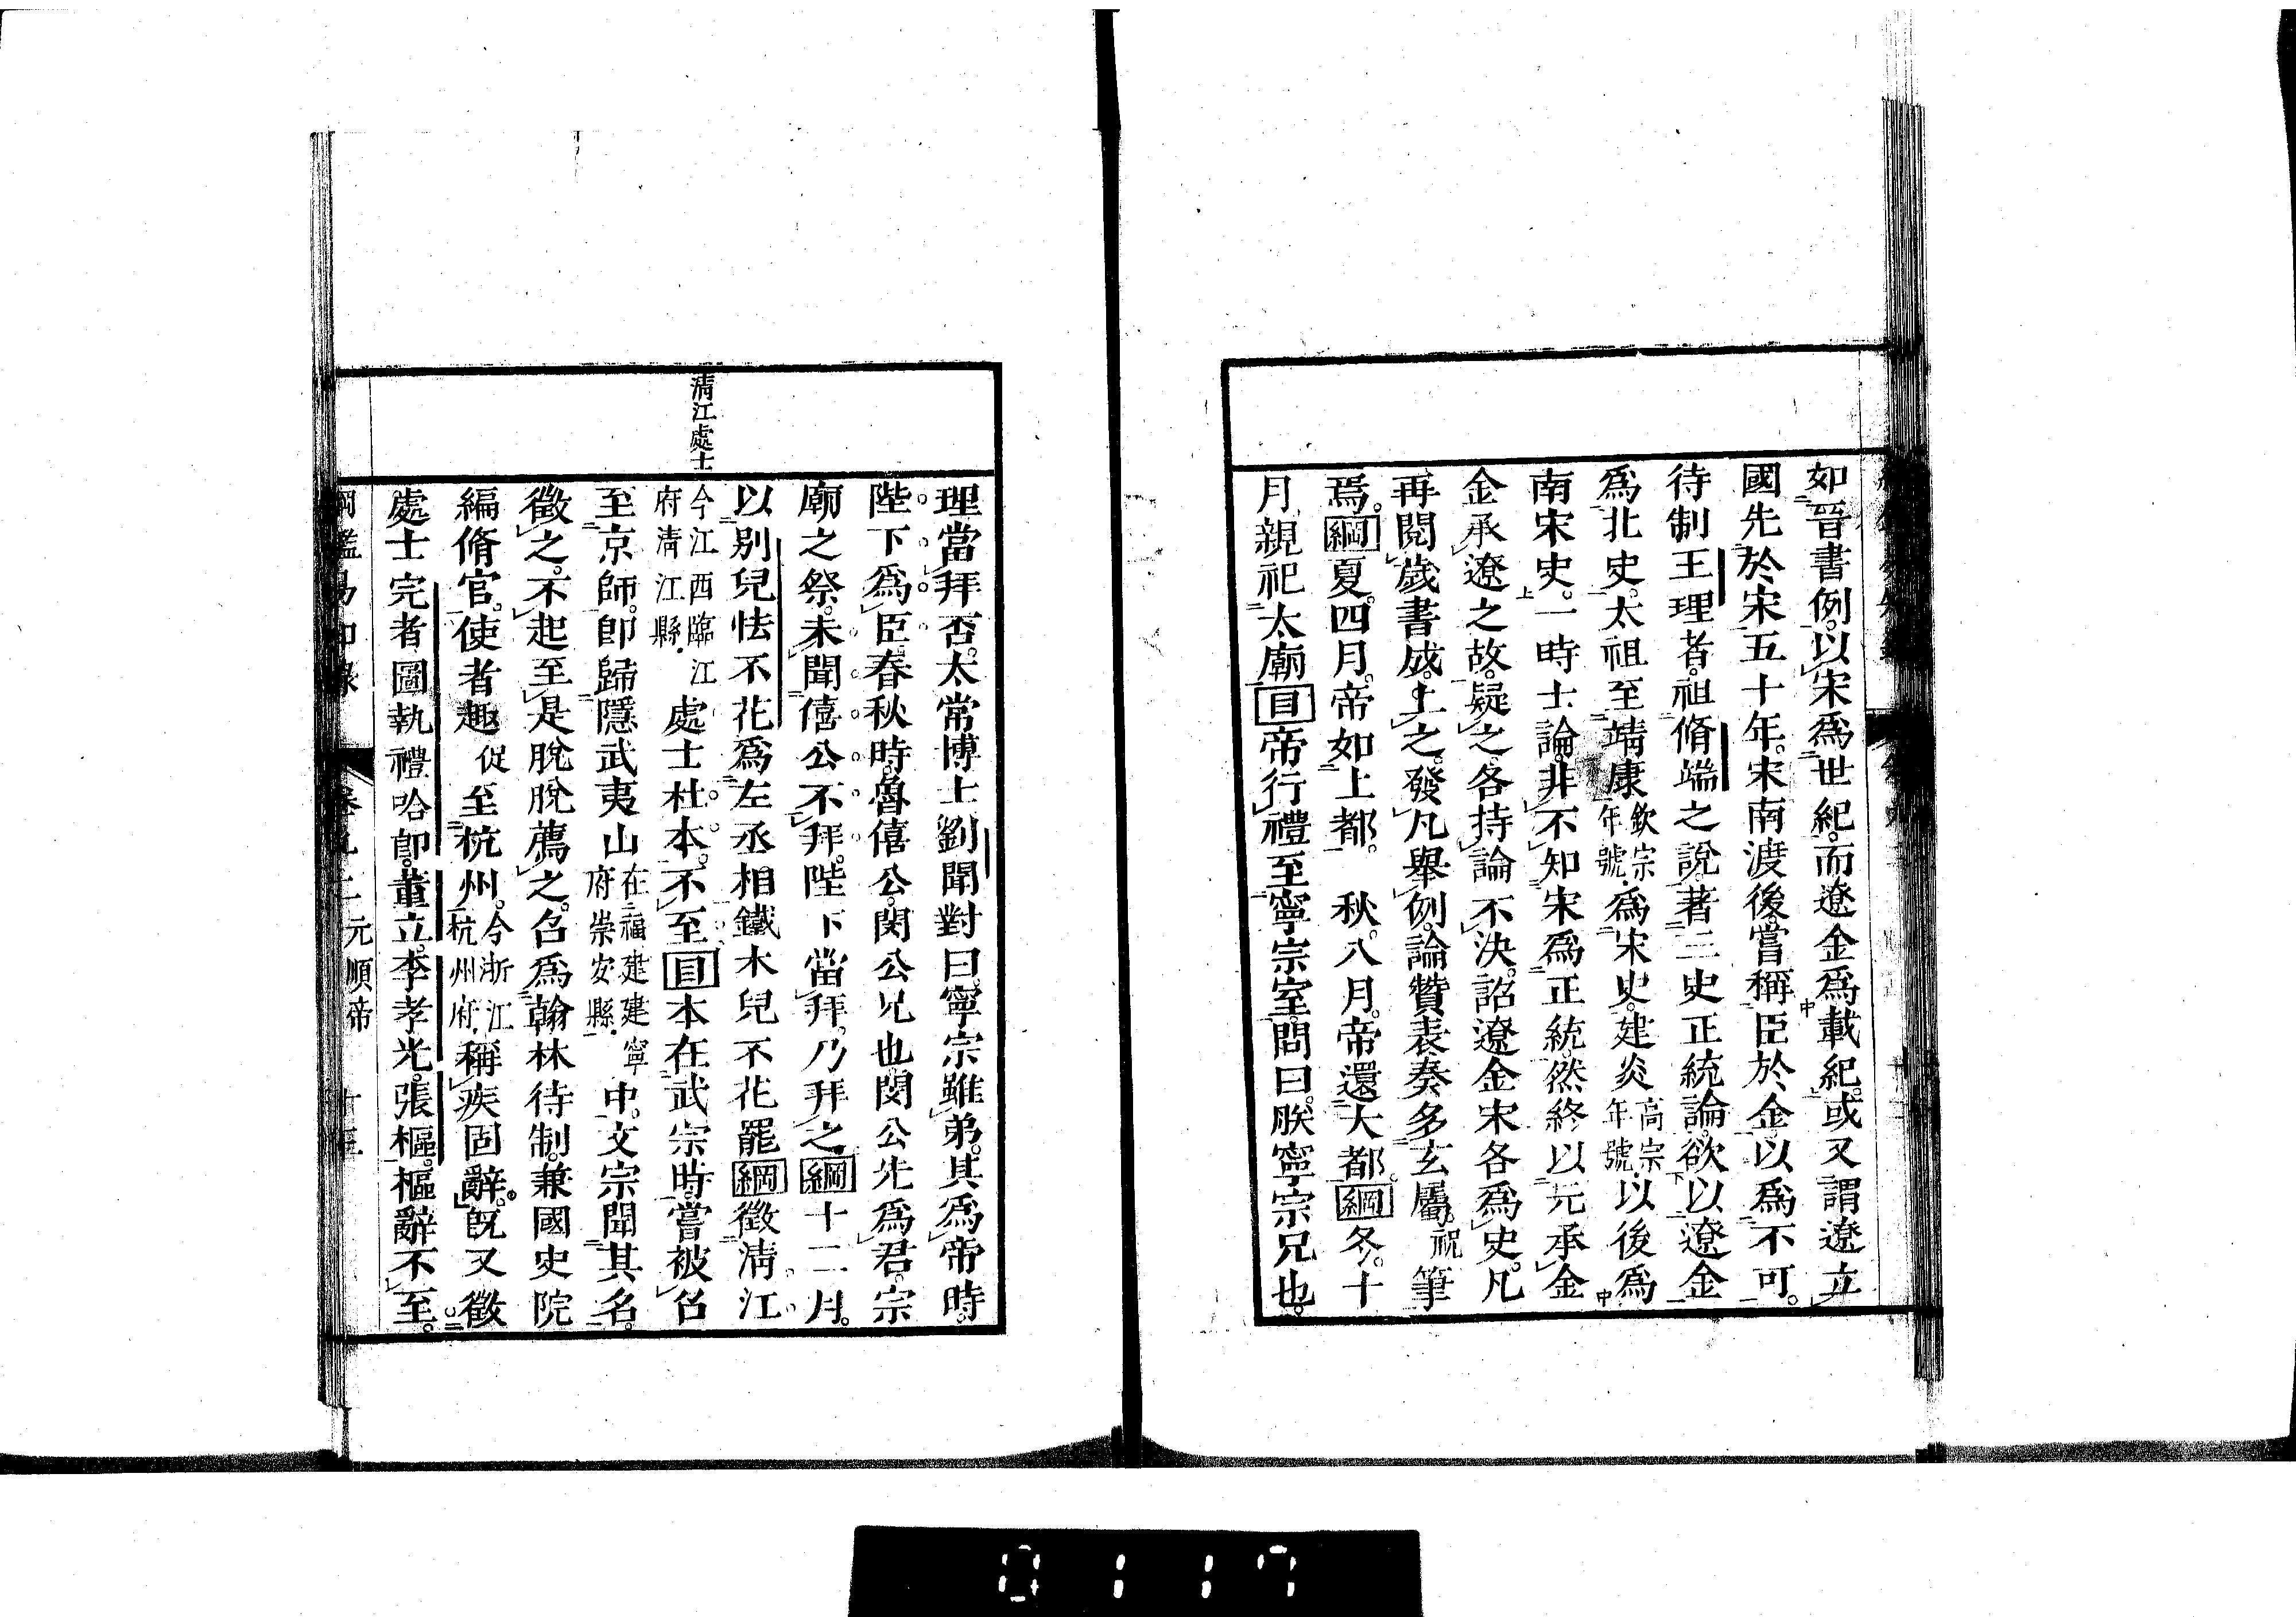 如晉書例。以宋爲世紀。而遼金爲載紀。或又謂遼立
國先於宋五十年。宋南渡後。嘗稱臣於金。以爲不可。
待制王理者。祖脩端之說。著三史正統論。欲以遼金
爲北史。太祖至靖康欽宗年號。爲宋史。建炎高宗年號。以後爲
南宋史。一時士論。非不知宋爲正統。然終以元承金
金承遼之故。疑之。各持論不決。詔遼金宋各爲史。凡
再閱歲書成。上之。發凡舉例。論贊表奏多玄屬祝筆
焉。綱夏。四月。帝如上都。 秋。八月。帝還大都。綱冬。十
月。親祀太廟目帝行禮至寧宗室。問曰。朕寧宗兄也。
清江處士
理當拜否。太常博士劉聞對曰。寧宗雖弟。其爲帝時。
陛下爲臣。春秋時。魯僖公。閔公兄也。閔公先爲君。宗
廟之祭。未聞僖公不拜。陛下當拜。乃拜之綱十二月。
以別兒怯不花爲左丞相鐵木兒不花罷綱徵清江
今江西臨江府清江縣。處士杜本。不至目本在武宗時。嘗被召
至京師。卽歸隱武夷山在福建建寧府崇安縣。中。文宗聞其名。
徵之。不起。至是脫脫薦之。召爲翰林待制。兼國史院
編脩官。使者趣促至杭州。今浙江杭州府。稱疾固辭。旣又徵
處士完者圖執禮哈卽。董立。李孝光。張樞。樞辭不至。
元順帝